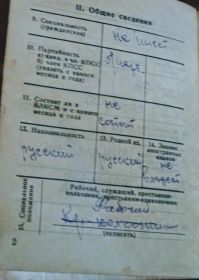 II. Общие сведения
9. Специальность (гражданская)
не имеет
10. Партийность
а) канд. в чл. КПСС
б) член КПСС
(указать с какого месяца и года)
11. Состоит ли в ВЛКСМ и с какого месяца и года
не
состоит
12. Национальность
13. Родной яз.
14. Знание иностранных языков
русский
русский
не
владеет
15. Социальное положение
Рабочий, служащий, крестьянин-
колхозник, крестьянин-единоличник
рабочий
(вписать)